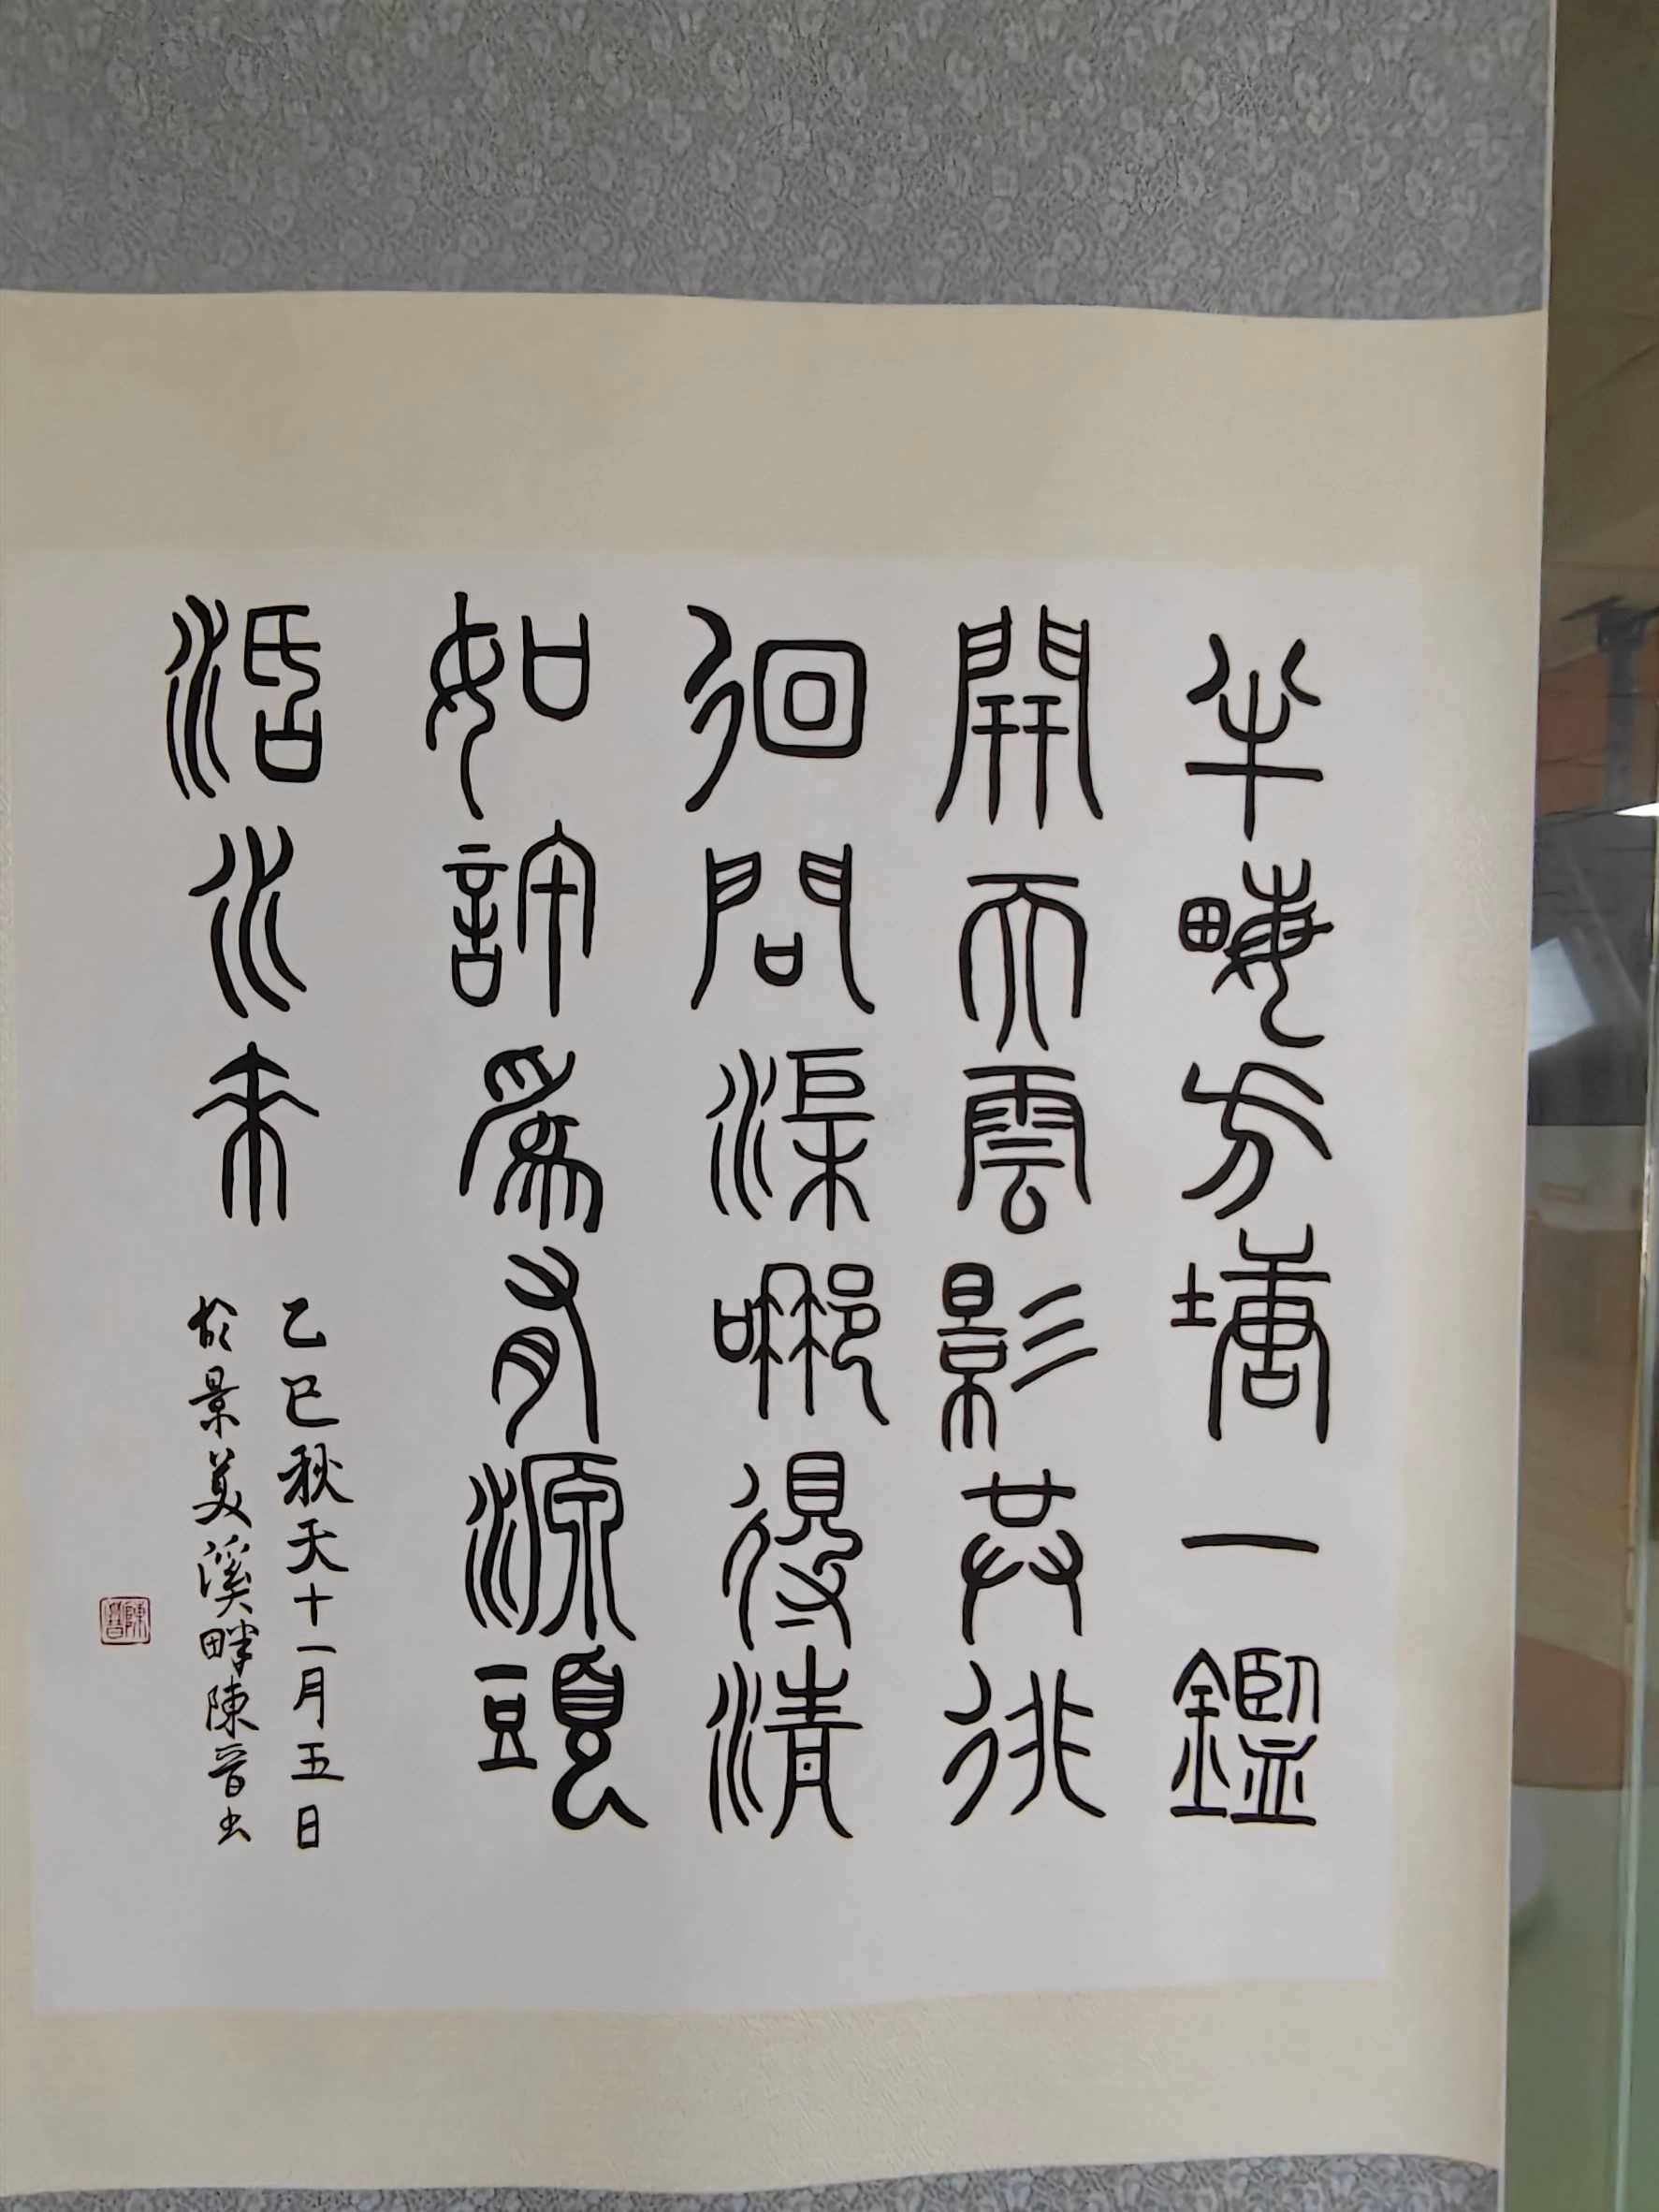 半畮方塘一鑑
開天雲影共徘
徊問渠哪得清
如許爲有源頭
活水來
乙巳秋天十一月五日
於景美溪畔陳晉书
陳晉